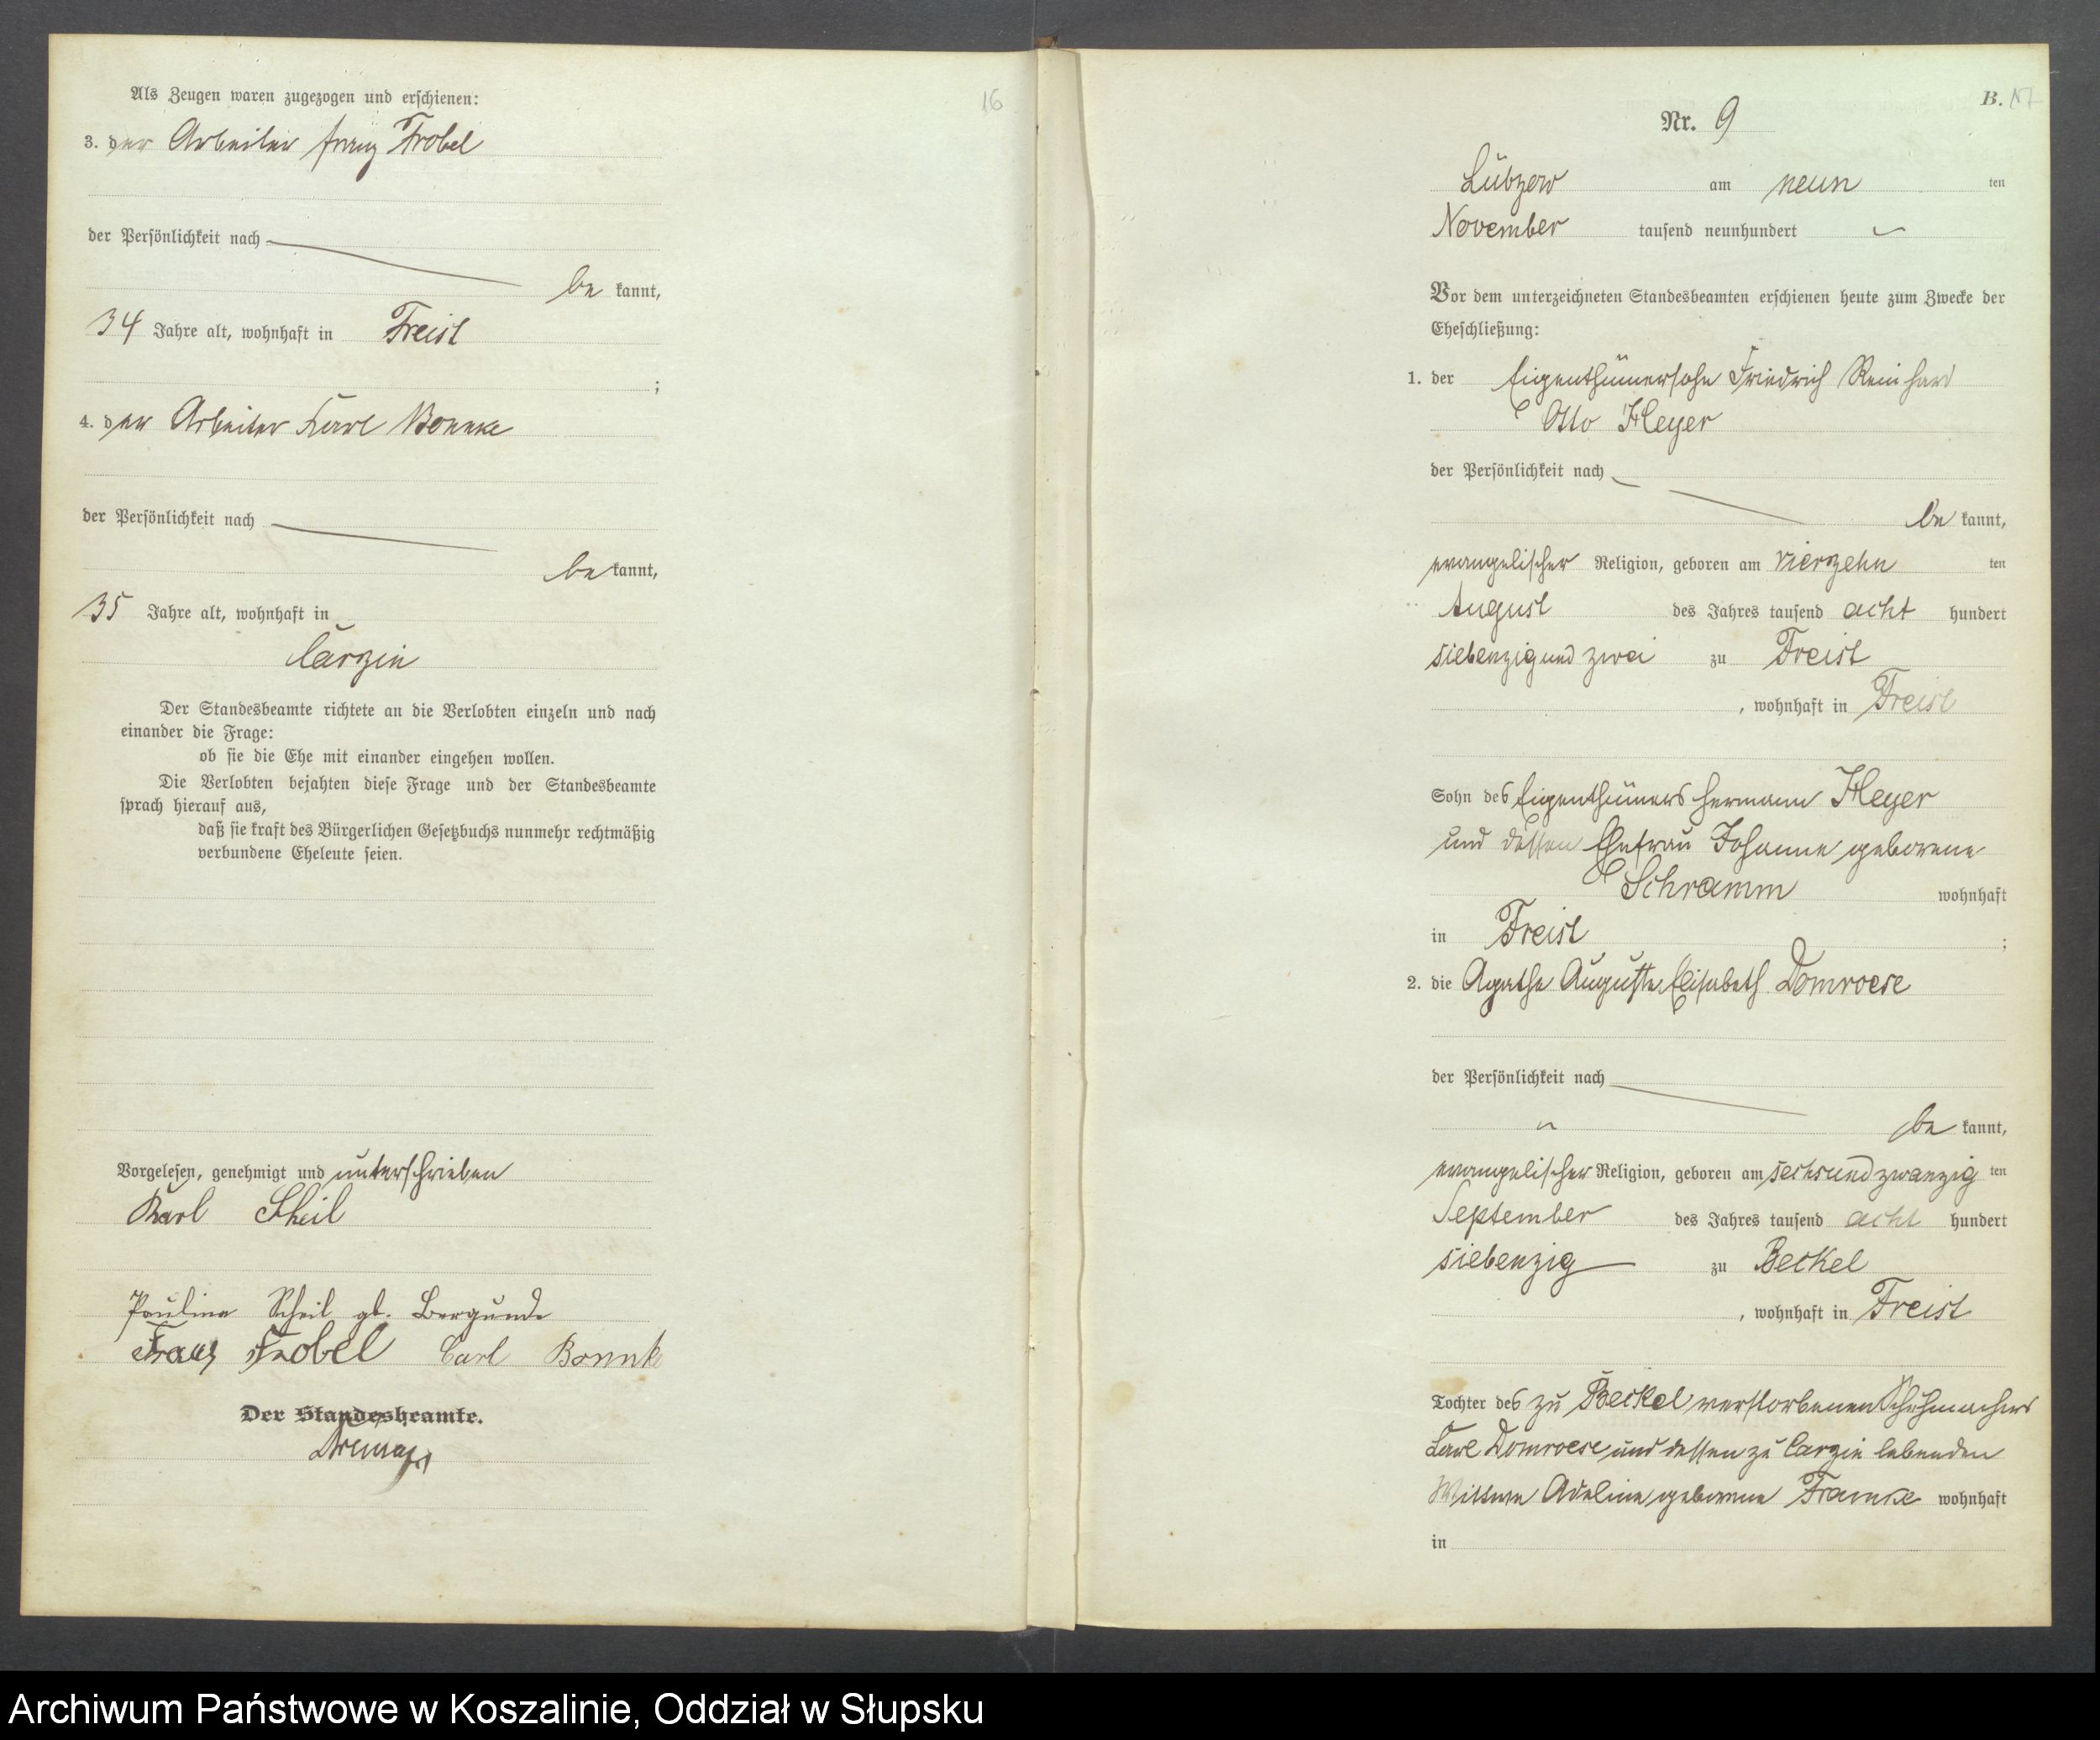 Als Zeugen waren zugezogen und erschienen:
3. der Arbeiter Franz Frobel
der Persönlichkeit nach
be kannt,
34 Jahre alt, wohnhaft in Freist
;
4. der Arbeiter Karl Bonnke
der Persönlichkeit nach
be kannt,
35 Jahre alt, wohnhaft in
Carzin
Der Standesbeamte richtete an die Verlobten einzeln und nach
einander die Frage:
ob sie die Ehe mit einander eingehen wollen.
Die Verlobten bejahten diese Frage und der Standesbeamte
sprach hierauf aus,
daß sie kraft des Bürgerlichen Gesetzbuchs nunmehr rechtmäßig
verbundene Eheleute seien.
Vorgelesen, genehmigt und unterschrieben
Karl Scheil
Pauline Scheil gb. Bergunde
Franz Frobel Carl Bonnke
Der Standesbeamte.
16
B. 17
Nr. 9
Lübzow am neun ten
November tausend neunhundert
Vor dem unterzeichneten Standesbeamten erschienen heute zum Zwecke der
Eheschließung:
1. der Eigenthümersohn Friedrich Reinhard
Otto Heyer
der Persönlichkeit nach
be kannt,
evangelischer Religion, geboren am vierzehn ten
August des Jahres tausend acht hundert
siebenzig und zwei zu Freist
, wohnhaft in Freist
Sohn des Eigenthümers Hermann Heyer
und dessen Ehefrau Johanne geborene
Schramm wohnhaft
in Freist ;
2. die Agathe Auguste Elisabeth Domroese
der Persönlichkeit nach
be kannt,
evangelischer Religion, geboren am sechsundzwanzig ten
September des Jahres tausend acht hundert
siebenzig zu Beckel
, wohnhaft in Freist
Tochter des zu Beckel verstorbenen Schuhmachers
Karl Domroese und dessen zu Carzin lebenden
Wittwe Adeline geborene Framke wohnhaft
in
Archiwum Państwowe w Koszalinie, Oddział w Słupsku